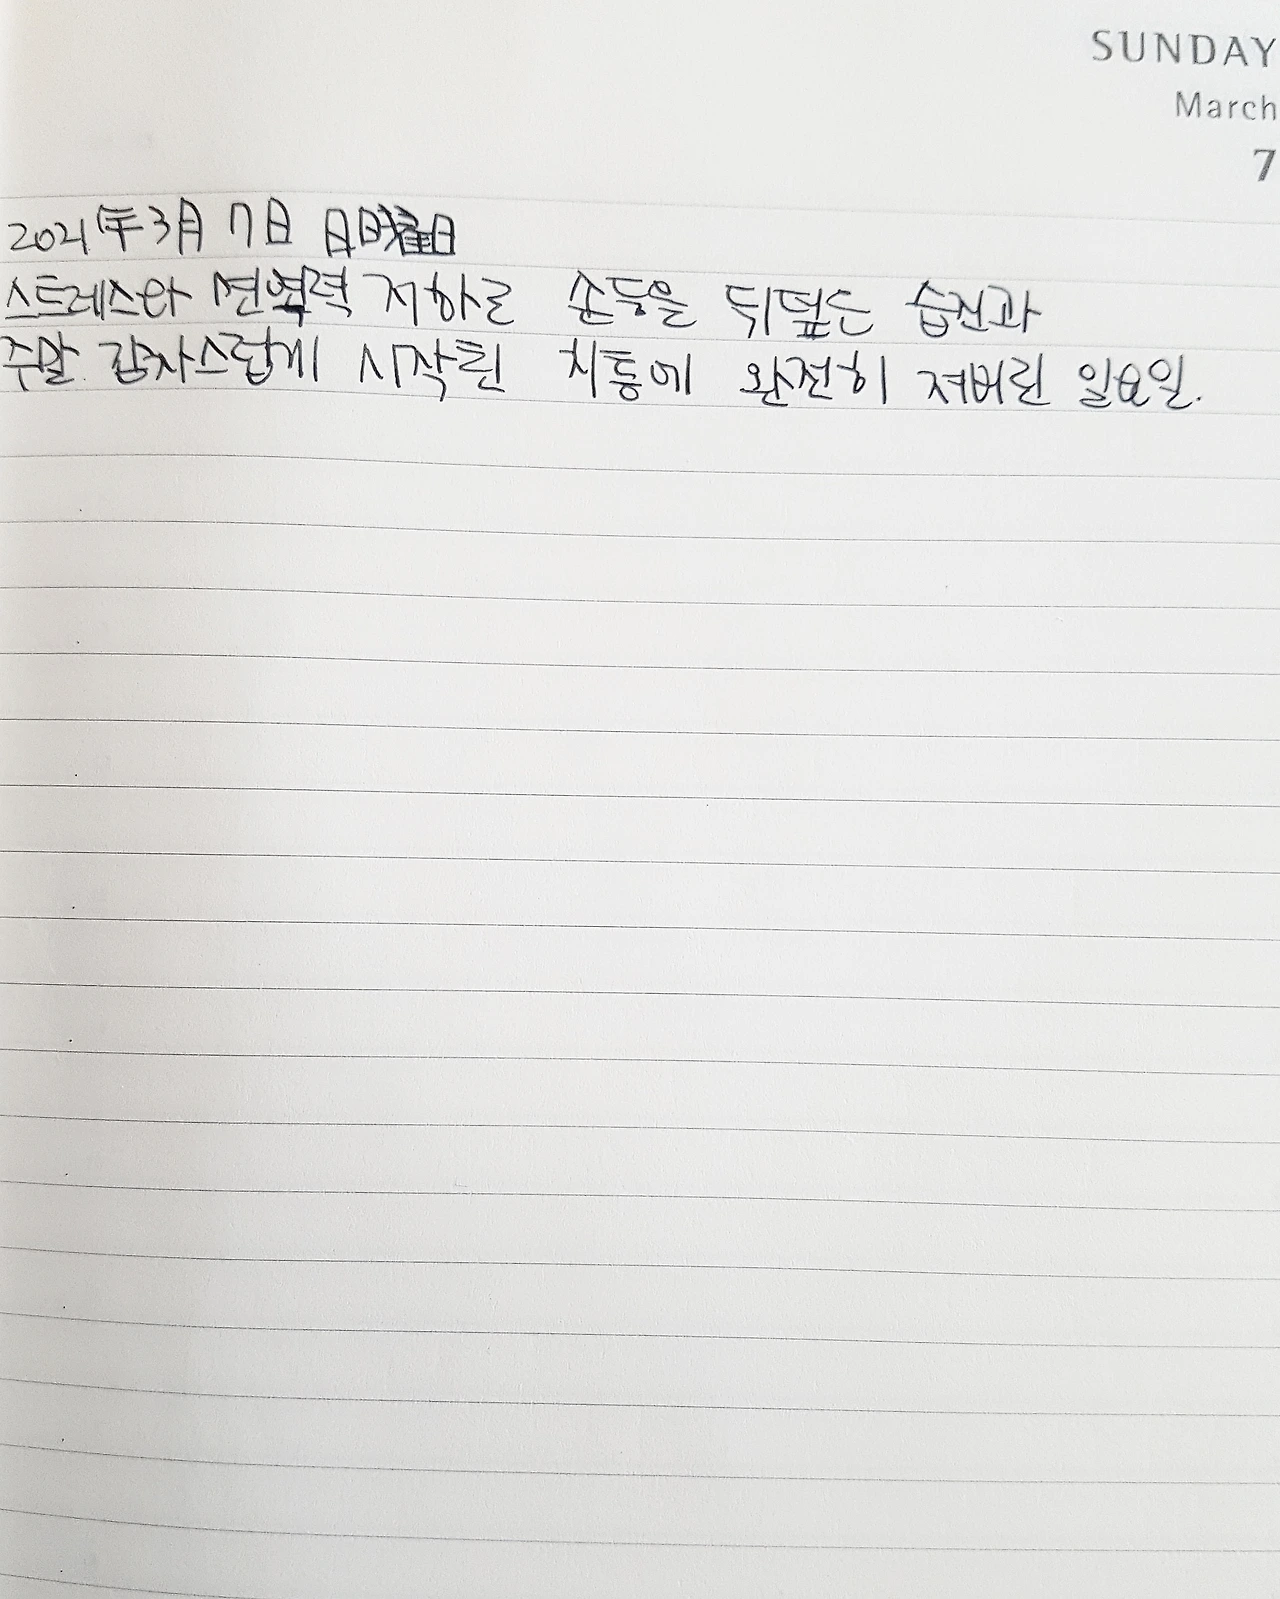 SUNDAY
March
7
2021年 3月 7日 日曜日
스트레스와 면역력 저하로 손등을 뒤덮은 습진과
주말 갑자스럽게 시작된 치통에 완전히 져버린 일요일.